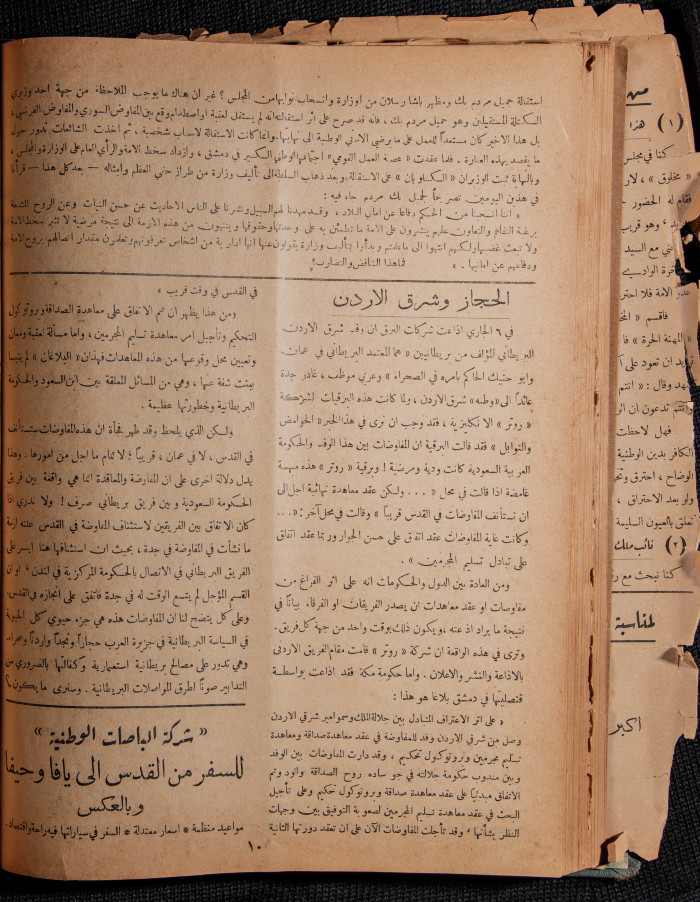 استقالة جميل مردم بك ومظهر باشا رسلان من الوزارة وانسحاب نوابهما من المجلس؟ غير ان هناك ما يوجب الملاحظة من جهة احد وزيري
الكتلة المستقيلين وهو جميل مردم بك، فانه قد صرح على اثر استقالته انه لم يستقل لعقبة او اصطدام وقع بين المفوض السوري والمفوض الفرنسي،
بل هذا الاخير كان مستعداً للعمل على ما يرضي الاماني الوطنية الى نهايتها، وانما كانت الاستقالة لاسباب شخصية، ثم اخذت الشائعات تدور حول
ما يقصد بهذه العبارة. فلما عقدت «عصبة العمل القومي» اجتماعها الوطني الكبير في دمشق، وازداد سخط الامة والرأي العام على الوزارة والمجلس،
وبالنهاية ثبت الوزيران على الاستقالة، وبعد ذهاب السلطة الى تأليف وزارة من طراز حقي العظم وامثاله — بعد كل هذا — قرأنا
في هذين اليومين تصريحاً لجميل بك مردم جاء فيه:
« اننا انسحبنا من الحكم دفاعا عن اماني البلاد، وقد مهدنا لهم السبيل ونشرنا على الناس الاحاديث عن حسن النيات وعن الروح المشبعة
برغبة التفاهم والتعاون علهم يشرون على الامة ما تطمئن به على وحدتها وحقوقها وينتهون من هذه الازمة الى نتيجة مرضية لا تثير سخط الامة
ولا تبعث غضبها، لكنهم انتهوا الى ما علمتم وبدأوا بتأليف وزارة يقولون عنها انها ادارية من اشخاص تعرفونهم وتقدرون مقدار اتصالهم بروح الامة
ودفاعهم عن امانيها. » فما هذا التناقض والتضارب؟
الحجاز وشرق الاردن
في ٦ الجاري اذاعت شركات البرق ان وفد شرق الاردن
البريطاني المؤلف من بريطانيين « هما المعتمد البريطاني في عمان
وابو حنيك الحاكم بامره في الصحراء » وعربي موظف، غادر جدة
عائداً الى «وطنه» شرق الاردن، ولما كانت هذه البرقيات لشركة
« روتر » الانكليزية، فقد وجب ان نرى في هذا الخبر « الحوامض
والتوابل » فقد قالت البرقية ان المفاوضات بين هذا الوفد والحكومة
العربية السعودية كانت ودية ومرضية! وبرقية « روتر » هذه مبهمة
غامضة اذا قالت في محل «... ولكن عقد معاهدة نهائية اجل الى
ان تستأنف المفاوضات في القدس قريباً » وقالت في محل آخر: «...
وكانت غاية المفاوضات عقد اتفاق على حسن الجوار وربما عقد اتفاق
على تبادل تسليم المجرمين » .
ومن العادة بين الدول والحكومات انه على اثر الفراغ من
مفاوضات او عقد معاهدات ان يصدر الفريقان او الفرقاء بياناً في
نتيجة ما يراد اذعنه ويكون ذلك بوقت واحد من جهة كل فريق.
ونرى في هذه الواقعة ان شركة « روتر » قامت مقام الفريق الاردني
بالاذاعة والنشر والاعلان. واما حكومة مكة فقد اذاعت بواسطة
قنصليتها في دمشق بلاغا هو هذا:
« على اثر الاعتراف المتبادل بين جلالة الملك وسمو امير شرقي الاردن
وصل من شرقي الاردن وفد للمفاوضة في عقد معاهدة صداقة ومعاهدة
تسليم مجرمين وبروتوكول تحكيم، وقد دارت المفاوضات بين الوفد
وبين مندوب حكومة جلالته في جو ساده روح الصداقة والود وتم
الاتفاق مبدئياً على عقد معاهدة صداقة وبروتوكول تحكيم وعلى تأجيل
البحث في عقد معاهدة تسليم المجرمين لصعوبة التوفيق بين وجهات
النظر بشأنها، وقد تأجلت المفاوضات الآن على ان تعقد دورتها الثانية
في القدس في وقت قريب »
ومن هذا يظهر ان تم الاتفاق على معاهدة الصداقة وبروتوكول
التحكيم وتأجيل امر معاهدة تسليم المجرمين، واما مسألة العقبة ومعان
وتعيين محل وقوعها من هذه المعاهدات فهذان « البلاغان » لم ينبسا
ببنت شفة عنها، وهي من المسائل المعلقة بين ابن السعود والحكومة
البريطانية وخطورتها عظيمة.
ولكن الذي يلحظ وقد ظهر فجأة ان هذه المفاوضات ستستأنف
في القدس، لا في عمان، قريباً؛ لاتمام ما اجل من امورها. وهذا
يدل دلالة اخرى على ان المفاوضة والمعاقدة انما هي واقعة بين فريق
الحكومة السعودية وبين فريق بريطاني صرف! ولا ندري اذا
كان الاتفاق بين الفريقين لاستئناف المفاوضة في القدس علته ازمة
ما نشأت في المفاوضة في جدة، بحيث ان استئنافها هنا ايسر على
الفريق البريطاني في الاتصال بالحكومة المركزية في لندن، او ان
القسم المؤجل لم يتسع الوقت له في جدة فاتفق على انجازه في القدس.
وعلى كل يتضح لنا ان المفاوضات هذه هي جزء حيوي كل الحيوية
في السياسة البريطانية في جزيرة العرب حجازاً ونجداً واردناً وصحراء.
وهي تدور على مصالح بريطانية استعمارية وكفالتها بالضروري من
التدابير صوناً لطرق المواصلات البريطانية. وسنرى ما يكون؟
« شركة الباصات الوطنية »
للسفر من القدس الى يافا وحيفا
وبالعكس
مواعيد منظمة * اسعار معتدلة * السفر في سياراتها فيه راحة واقتصاد.
١٠
(١) هذا
كنا في مجلس
« مخلوق »، لار
فقام له الحضور
وهو قريب
مع السيد
الامة فلا احتر
فاقسم «
« المهنة الحرة » فا
ان تعود على
وقال: « انتم
تدعون ان
فهل لاحظت
الكافر بدين الوطنية
الوضاح، احترق
ولو بعد الاحتراق،
بالعيون السليمة
(٢) نائب ملك
كنا نبحث مع
لمناسبة
اكبر